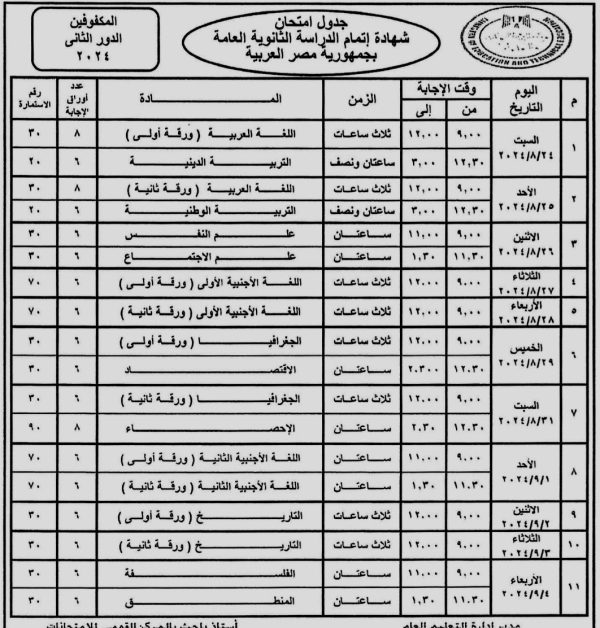 جدول امتحان
شهادة إتمام الدراسة الثانوية العامة
بجمهورية مصر العربية
المكفوفين
الدور الثانى
٢٠٢٤
م | اليوم التاريخ | وقت الإجابة من | إلى | الزمن | المــادة | عدد أوراق الإجابة | رقم الاستمارة
١ | السبت ٢٠٢٤/٨/٢٤ | ٩,٠٠ | ١٢,٠٠ | ثلاث ساعات | اللغة العربية ( ورقة أولى ) | ٨ | ٣٠
١٢,٣٠ | ٣,٠٠ | ساعتان ونصف | التربية الدينية | ٦ | ٢٠
٢ | الأحد ٢٠٢٤/٨/٢٥ | ٩,٠٠ | ١٢,٠٠ | ثلاث ساعات | اللغة العربية ( ورقة ثانية ) | ٨ | ٣٠
١٢,٣٠ | ٣,٠٠ | ساعتان ونصف | التربية الوطنية | ٦ | ٢٠
٣ | الاثنين ٢٠٢٤/٨/٢٦ | ٩,٠٠ | ١١,٠٠ | ساعتان | علم النفس | ٦ | ٣٠
١١,٣٠ | ١,٣٠ | ساعتان | علم الاجتماع | ٦ | ٣٠
٤ | الثلاثاء ٢٠٢٤/٨/٢٧ | ٩,٠٠ | ١٢,٠٠ | ثلاث ساعات | اللغة الأجنبية الأولى ( ورقة أولى ) | ٦ | ٧٠
٥ | الأربعاء ٢٠٢٤/٨/٢٨ | ٩,٠٠ | ١٢,٠٠ | ثلاث ساعات | اللغة الأجنبية الأولى ( ورقة ثانية ) | ٦ | ٧٠
٦ | الخميس ٢٠٢٤/٨/٢٩ | ٩,٠٠ | ١٢,٠٠ | ثلاث ساعات | الجغرافيا ( ورقة أولى ) | ٦ | ٣٠
١٢,٣٠ | ٢,٣٠٠ | ساعتان | الاقتصاد | ٦ | ٣٠
٧ | السبت ٢٠٢٤/٨/٣١ | ٩,٠٠ | ١٢,٠٠ | ثلاث ساعات | الجغرافيا ( ورقة ثانية ) | ٦ | ٣٠
١٢,٣٠ | ٢,٣٠ | ساعتان | الإحصاء | ٨ | ٩٠
٨ | الأحد ٢٠٢٤/٩/١ | ٩,٠٠ | ١١,٠٠ | ساعتان | اللغة الأجنبية الثانية ( ورقة أولى ) | ٦ | ٧٠
١١,٣٠ | ١,٣٠ | ساعتان | اللغة الأجنبية الثانية ( ورقة ثانية ) | ٦ | ٧٠
٩ | الاثنين ٢٠٢٤/٩/٢ | ٩,٠٠ | ١٢,٠٠ | ثلاث ساعات | التاريخ ( ورقة أولى ) | ٦ | ٣٠
١٠ | الثلاثاء ٢٠٢٤/٩/٣ | ٩,٠٠ | ١٢,٠٠ | ثلاث ساعات | التاريخ ( ورقة ثانية ) | ٦ | ٣٠
١١ | الأربعاء ٢٠٢٤/٩/٤ | ٩,٠٠ | ١١,٠٠ | ساعتان | الفلسفة | ٦ | ٣٠
١١,٣٠ | ١,٣٠ | ساعتان | المنطق | ٦ | ٣٠
مدير إدارة التعليم العام
أستاذ باحث بالمركز القومى للامتحانات